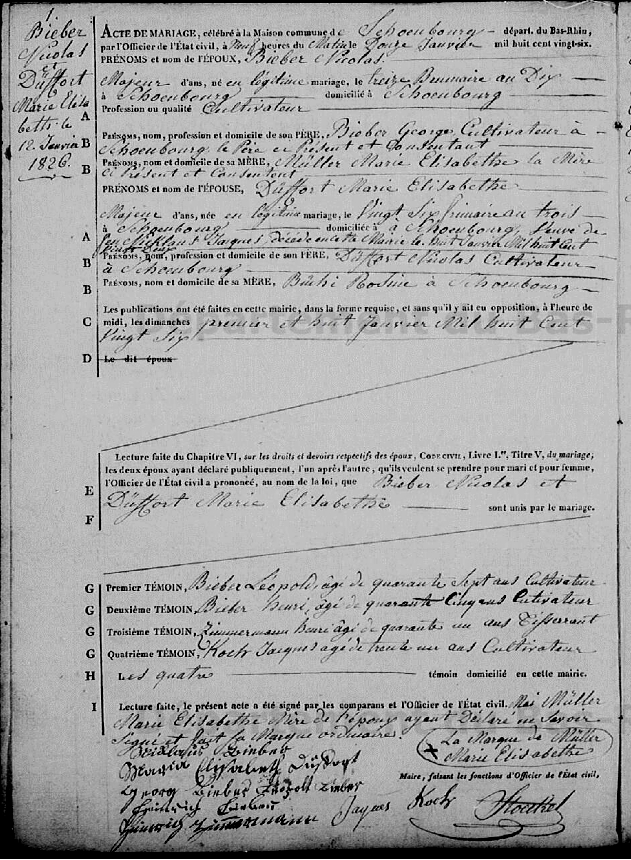 1.
Bieber
Nicolas
et
Düffort
Marie Elisa
beth le
12 Janvier
1826.
ACTE DE MARIAGE, célébré à la Maison commune de Schoenbourg départ. du Bas-Rhin,
par l'Officier de l'État civil, à neuf heures du Matin le Douze Janvier mil huit cent vingt-six.
PRÉNOMS et nom de l'ÉPOUX, Bieber Nicolas
Majeur d'ans, né en légitime mariage, le treize Brumaire au Dix
à Schoenbourg domicilié à Schoenbourg
Profession ou qualité Cultivateur
A
PRÉNOMS, nom, profession et domicile de son PÈRE, Bieber George Cultivateur à
B Schoenbourg le Père ci Présent et Consentant
PRÉNOMS, nom et domicile de sa MÈRE, Müller Marie Elisabethe la Mère
B ci Présent et Consentent
PRÉNOMS et nom de l'ÉPOUSE, Düffort Marie Elisabethe
Majeure d'ans, née en légitime mariage, le Vingt Six frimaire au trois
à Schoenbourg domiciliée à à Schoenbourg, Veuve de
A feu Jaques décédé en cette Mairie le huit Janvier Mil huit Cent
vingt
B PRÉNOMS, nom, profession et domicile de son PÈRE, Düffort Nicolas Cultivateur
à Schoenbourg
B PRÉNOMS, nom et domicile de sa MÈRE, Rosine à Schoenbourg
Les publications ont été faites en cette mairie, dans la forme requise, et sans qu'il y ait eu opposition, à l'heure de
C midi, les dimanches premier et huit Janvier Mil huit Cent
Vingt Six
D Le dit époux
Lecture faite du Chapitre VI, sur les droits et devoirs respectifs des époux, CODE CIVIL, Livre I.er, Titre V, du mariage;
les deux époux ayant déclaré publiquement, l'un après l'autre, qu'ils veulent se prendre pour mari et pour femme,
E l'Officier de l'État civil a prononcé, au nom de la loi, que Bieber Nicolas et
F Düffort Marie Elisabethe sont unis par le mariage.
G Premier TÉMOIN, Bieber Léopold, âgé de quarante Sept ans Cultivateur
G Deuxième TÉMOIN, Bieber henri, âgé de quarante Cinq ans Cutivateur
G Troisième TÉMOIN, Zimmermann henri âgé de quarante un ans Tisserant
G Quatrième TÉMOIN, Koch Jacques agé de trente un ans Cultivateur
H Les quatre témoin domicilié en cette mairie.
I Lecture faite, le présent acte a été signé par les comparans et l'Officier de l'État civil. Mai Müller
Marie Elisabethe Mère de l'époux ayant Déclaré ne Savoir
Signé et fait Sa Marque ordinaire
Nicklaus Bieber
La Marque de Müller
Marie Elisabethe
Maria Elisabeth Düffort
Maire, faisant les fonctions d'Officier de l'État civil,
Georg Bieber Leopolt Bieber
Heinrich Bieber
Jaques Koch
Heinrich Zimmermann